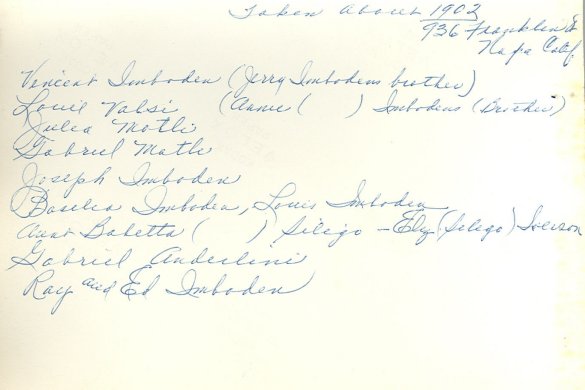 Taken About 1902
936 Franklin St
Napa Calif.
Vincent Imboden (Jerry Imbodens brother)
Louie Valsi (Annie ( ) Imbodens (Brother)
Julia Motli
Gabriel Matli
Joseph Imboden
Basilia Imboden, Louis Imboden
Aunt Babetta ( ) Silego - (Silego) Iverson
Gabriel Anderlini
Ray and Ed Imboden